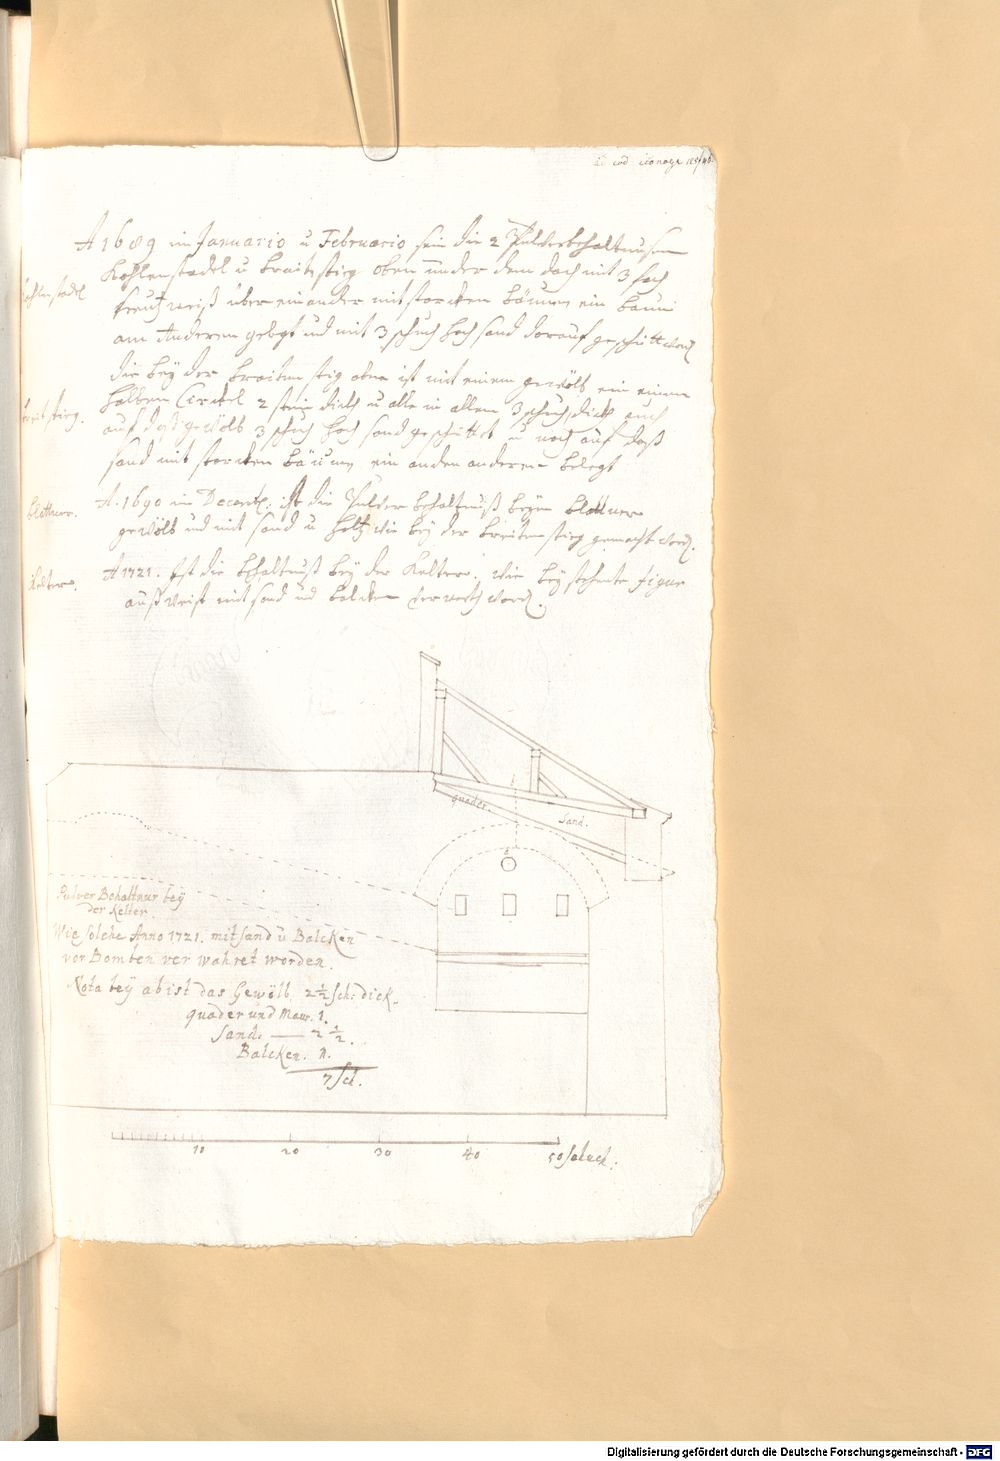 A 1689 im Januario u Februario sein die 2 Pulverbehaltnusen
Kohlenstadel
Kohlenstadel u braitestieg oben under dem dach mit 3 fach
kreutzweiß über einander mit starcken bäumen ein baum
am Anderen gelegt und mit 3 schuch hoch sand darauf geschütt word
die bey der braiten stieg aber ist mit einem gewölb ein einem
halben Circkel 2 stein dick u alle in allem 3 schuch dick auch
brait stieg.
auf daß gewölb 3 schuch hoch sand geschüttet u noch auf daß
sand mit starcken bäumen ein anden anderen belegt
blattner.
A. 1690 im Decemb. ist die Pulver behaltnuß beym blattner
gewölb und mit sand u holtz wie bey der breiten stieg gemacht word.
Kelter.
A 1721. Ist die behaltnuß bey der Kelter. wie bey stehente figur
außweist mit sand und balcken verwerth word.
quader.
Sand.
Pulver Behaltnur bey
der Kelter.
Wie solche Anno 1721. mit sand u Balcken
vor Bomben ver wahret worden.
Nota bey a b ist das Gewölb 2 1/2 sch: dick.
quader und Maur. 1.
Sand. — 2 1/2.
Balcken.
7 sch.
10 20 30 40 50 schuch.
Digitalisierung gefördert durch die Deutsche Forschungsgemeinschaft - DFG